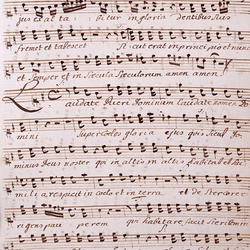 jus exalta bitur in gloria dentibus suis
fremet et tabescet Sicut erat in principio et nunc
et semper et in sæcula sæculorum amen amen.
Laudate Pueri Dominum Laudate nomen
mini super cœlos gloria ejus quis sicut Do
minus Deus noster qui in altis in altis habitat et hu
milia respicit in cœlo et in terra et de stercore
rigens pau perem qui habitare facit sterilem